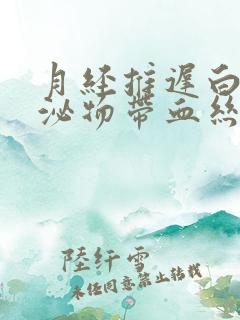 月经推遲白
泌物带血絲
陸纤雪
未经同意禁止转载